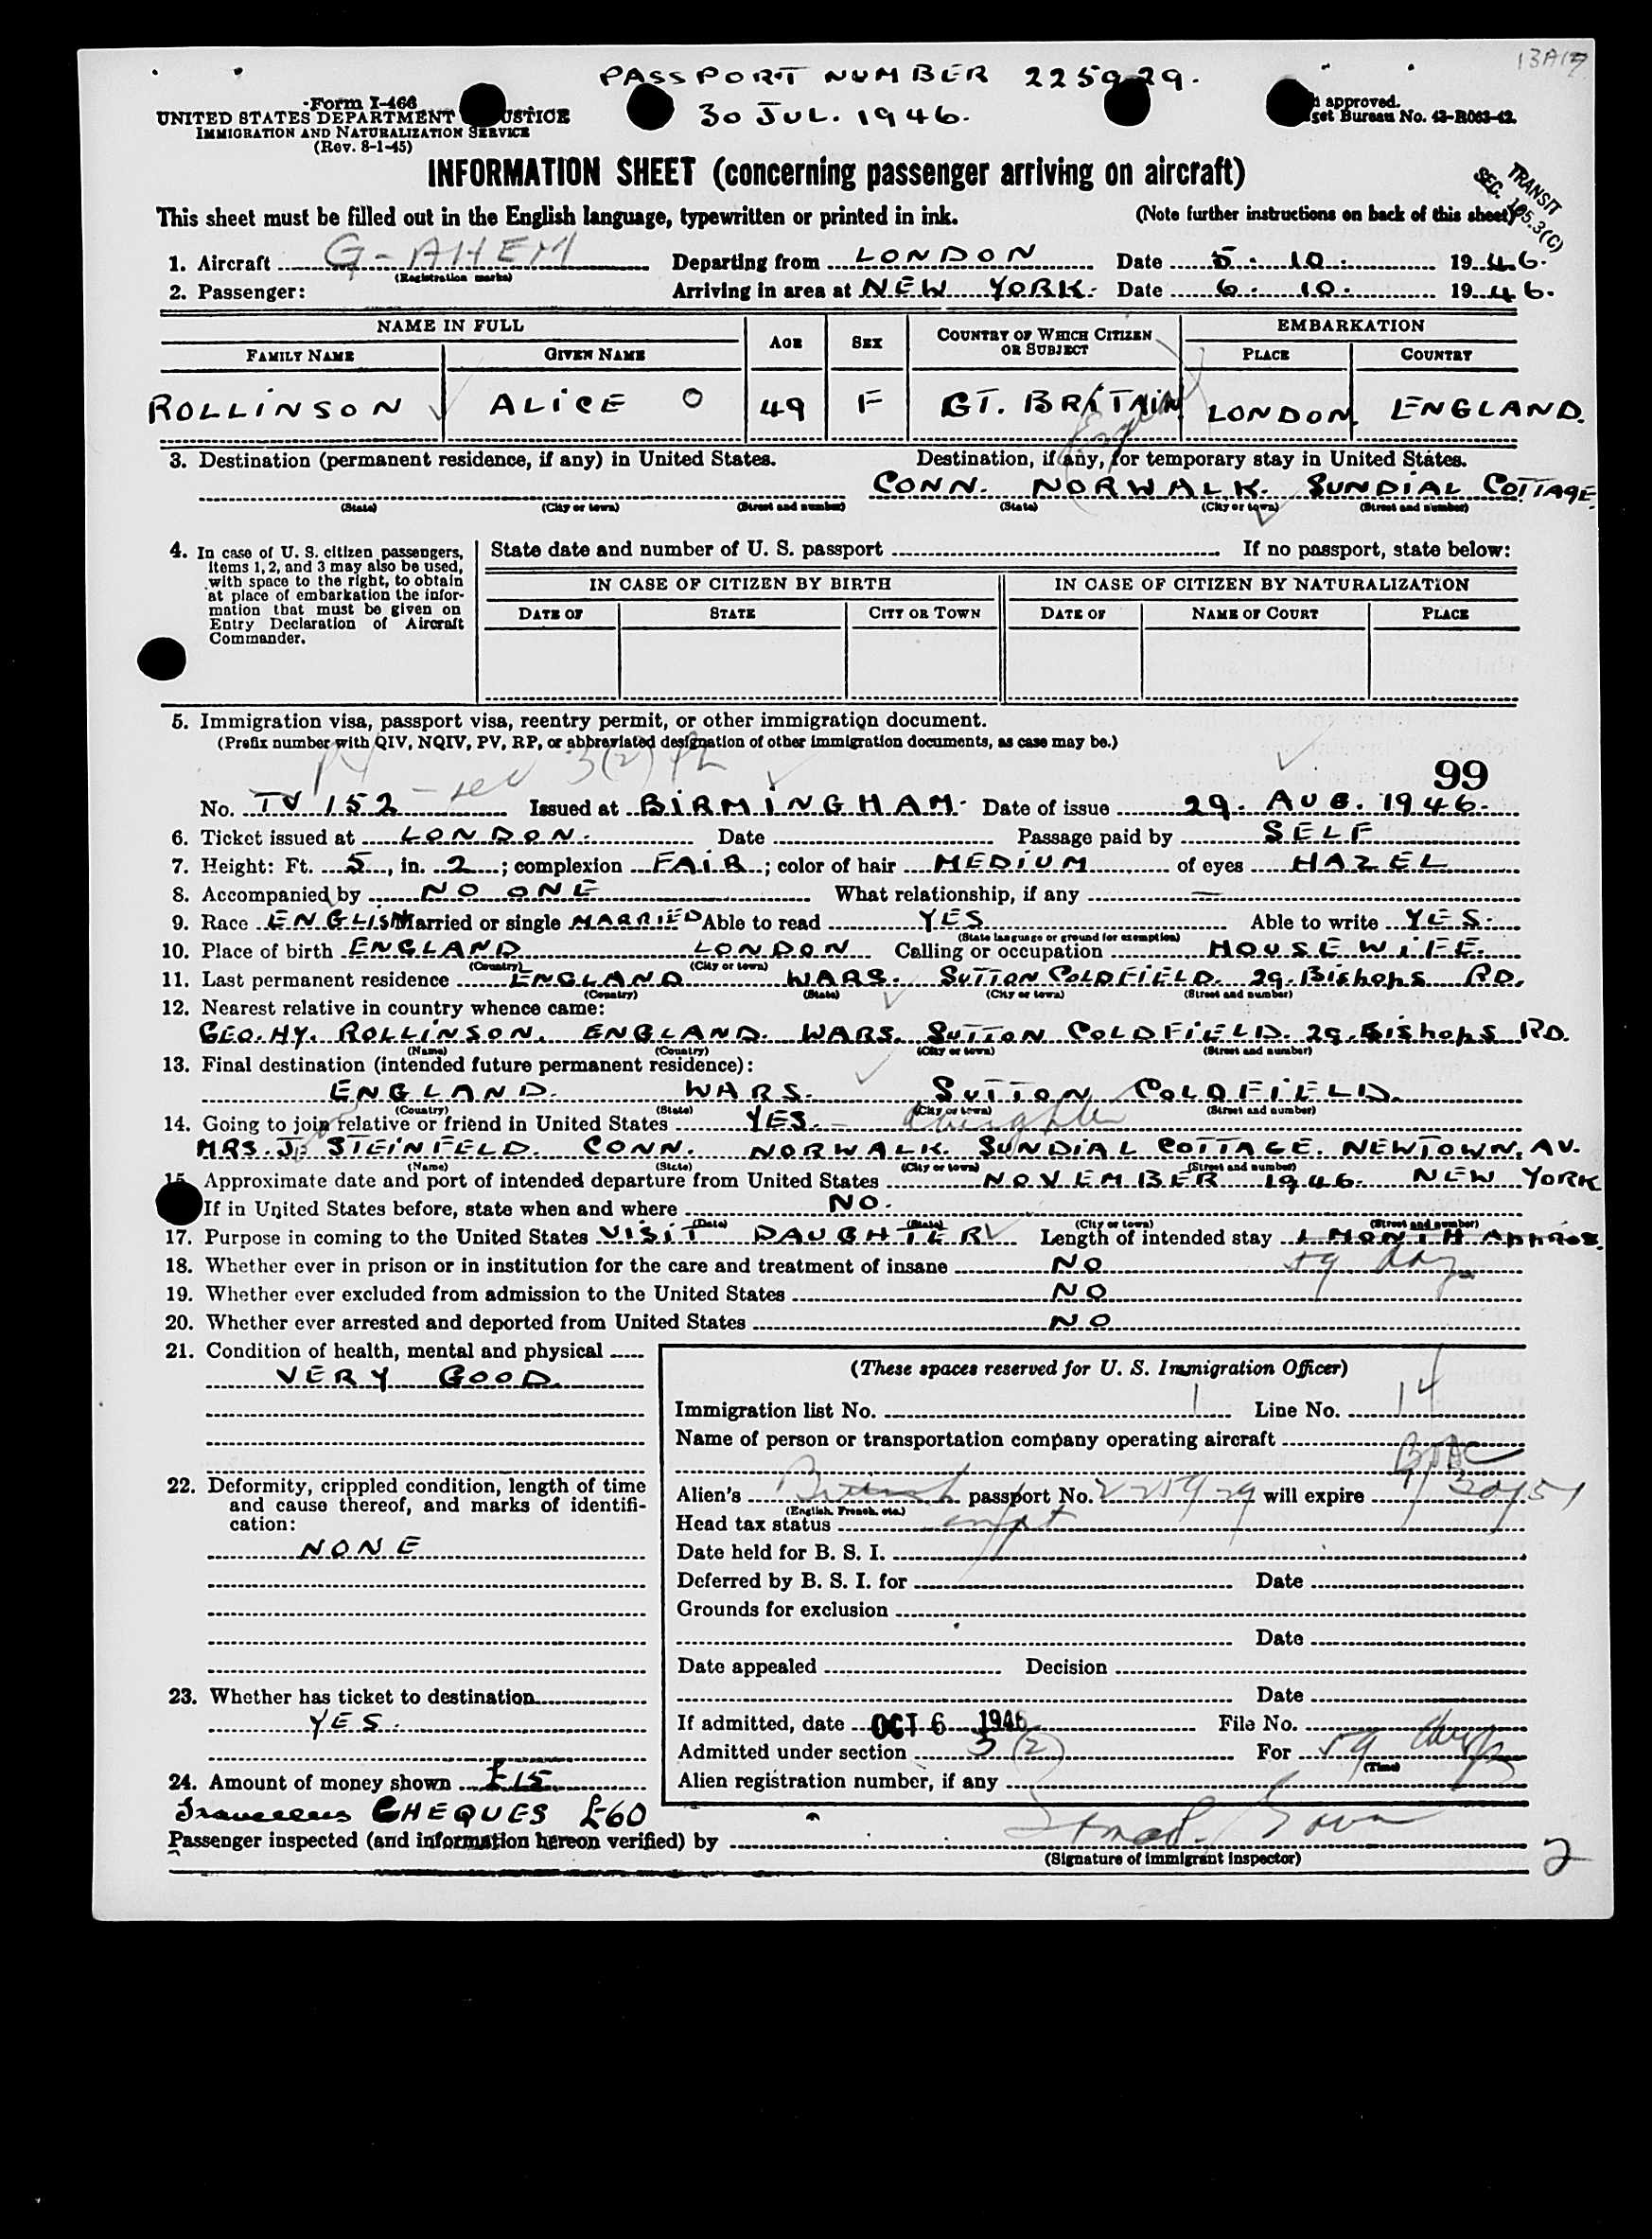 13A17
PASSPORT NUMBER 225929.
30 JUL. 1946.
Form I-466
UNITED STATES DEPARTMENT JUSTICE
IMMIGRATION AND NATURALIZATION SERVICE
(Rev. 8-1-45)
approved.
get Bureau No. 43-R063-42.
INFORMATION SHEET (concerning passenger arriving on aircraft)
TRANSIT
SEC. 105.3(C)
This sheet must be filled out in the English language, typewritten or printed in ink. (Note further instructions on back of this sheet)
1. Aircraft G-AHEM Departing from LONDON Date 5. 10. 1946.
(Registration marks)
2. Passenger: Arriving in area at NEW YORK. Date 6. 10. 1946.
NAME IN FULL AGE SEX COUNTRY OF WHICH CITIZEN OR SUBJECT EMBARKATION
FAMILY NAME GIVEN NAME PLACE COUNTRY
ROLLINSON ALICE O 49 F GT. BRITAIN LONDON. ENGLAND.
3. Destination (permanent residence, if any) in United States. Destination, if any, for temporary stay in United States.
CONN. NORWALK. SUNDIAL COTTAGE.
(State) (City or town) (Street and number) (State) (City or town) (Street and number)
4. In case of U. S. citizen passengers, items 1, 2, and 3 may also be used, with space to the right, to obtain at place of embarkation the information that must be given on Entry Declaration of Aircraft Commander.
State date and number of U. S. passport If no passport, state below:
IN CASE OF CITIZEN BY BIRTH IN CASE OF CITIZEN BY NATURALIZATION
DATE OF STATE CITY OR TOWN DATE OF NAME OF COURT PLACE
5. Immigration visa, passport visa, reentry permit, or other immigration document.
(Prefix number with QIV, NQIV, PV, RP, or abbreviated designation of other immigration documents, as case may be.)
PV - sec 3(2)
99
No. TV 152 Issued at BIRMINGHAM. Date of issue 29. AUG. 1946.
6. Ticket issued at LONDON. Date Passage paid by SELF
7. Height: Ft. 5, in. 2; complexion FAIR; color of hair MEDIUM of eyes HAZEL
8. Accompanied by NO ONE What relationship, if any =
9. Race ENGLISH Married or single MARRIED Able to read YES Able to write YES.
(State language or ground for exemption)
10. Place of birth ENGLAND LONDON Calling or occupation HOUSEWIFE.
(Country) (City or town)
11. Last permanent residence ENGLAND WARS. SUTTON COLDFIELD. 29. Bishops RD.
(Country) (State) (City or town) (Street and number)
12. Nearest relative in country whence came:
GEO. HY. ROLLINSON. ENGLAND. WARS. SUTTON COLDFIELD. 29. Bishops RD.
(Name) (Country) (City or town) (Street and number)
13. Final destination (intended future permanent residence):
ENGLAND. WARS. SUTTON COLDFIELD.
(Country) (State) (City or town) (Street and number)
14. Going to join relative or friend in United States YES. - daughter
MRS. J. STEINFELD. CONN. NORWALK. SUNDIAL COTTAGE. NEWTOWN. AV.
(Name) (State) (City or town) (Street and number)
15. Approximate date and port of intended departure from United States NOVEMBER 1946. NEW YORK
If in United States before, state when and where NO.
(Date) (State) (City or town) (Street and number)
17. Purpose in coming to the United States VISIT DAUGHTER Length of intended stay 1 MONTH APPROX.
59 days
18. Whether ever in prison or in institution for the care and treatment of insane NO
19. Whether ever excluded from admission to the United States NO
20. Whether ever arrested and deported from United States NO
21. Condition of health, mental and physical
VERY GOOD.
22. Deformity, crippled condition, length of time and cause thereof, and marks of identification:
NONE
23. Whether has ticket to destination
YES.
24. Amount of money shown £15
Travellers CHEQUES £60
(These spaces reserved for U. S. Immigration Officer)
Immigration list No. 1 Line No. 14
Name of person or transportation company operating aircraft
BOAC
Alien's British passport No. 225929 will expire 7/30/51
(English, French, etc.)
Head tax status
Date held for B. S. I.
Deferred by B. S. I. for Date
Grounds for exclusion
Date
Date appealed Decision
Date
If admitted, date OCT 6 1946 File No.
Admitted under section 3(2) For 59 days
(Time)
Alien registration number, if any
Passenger inspected (and information hereon verified) by
(Signature of immigrant inspector)
2